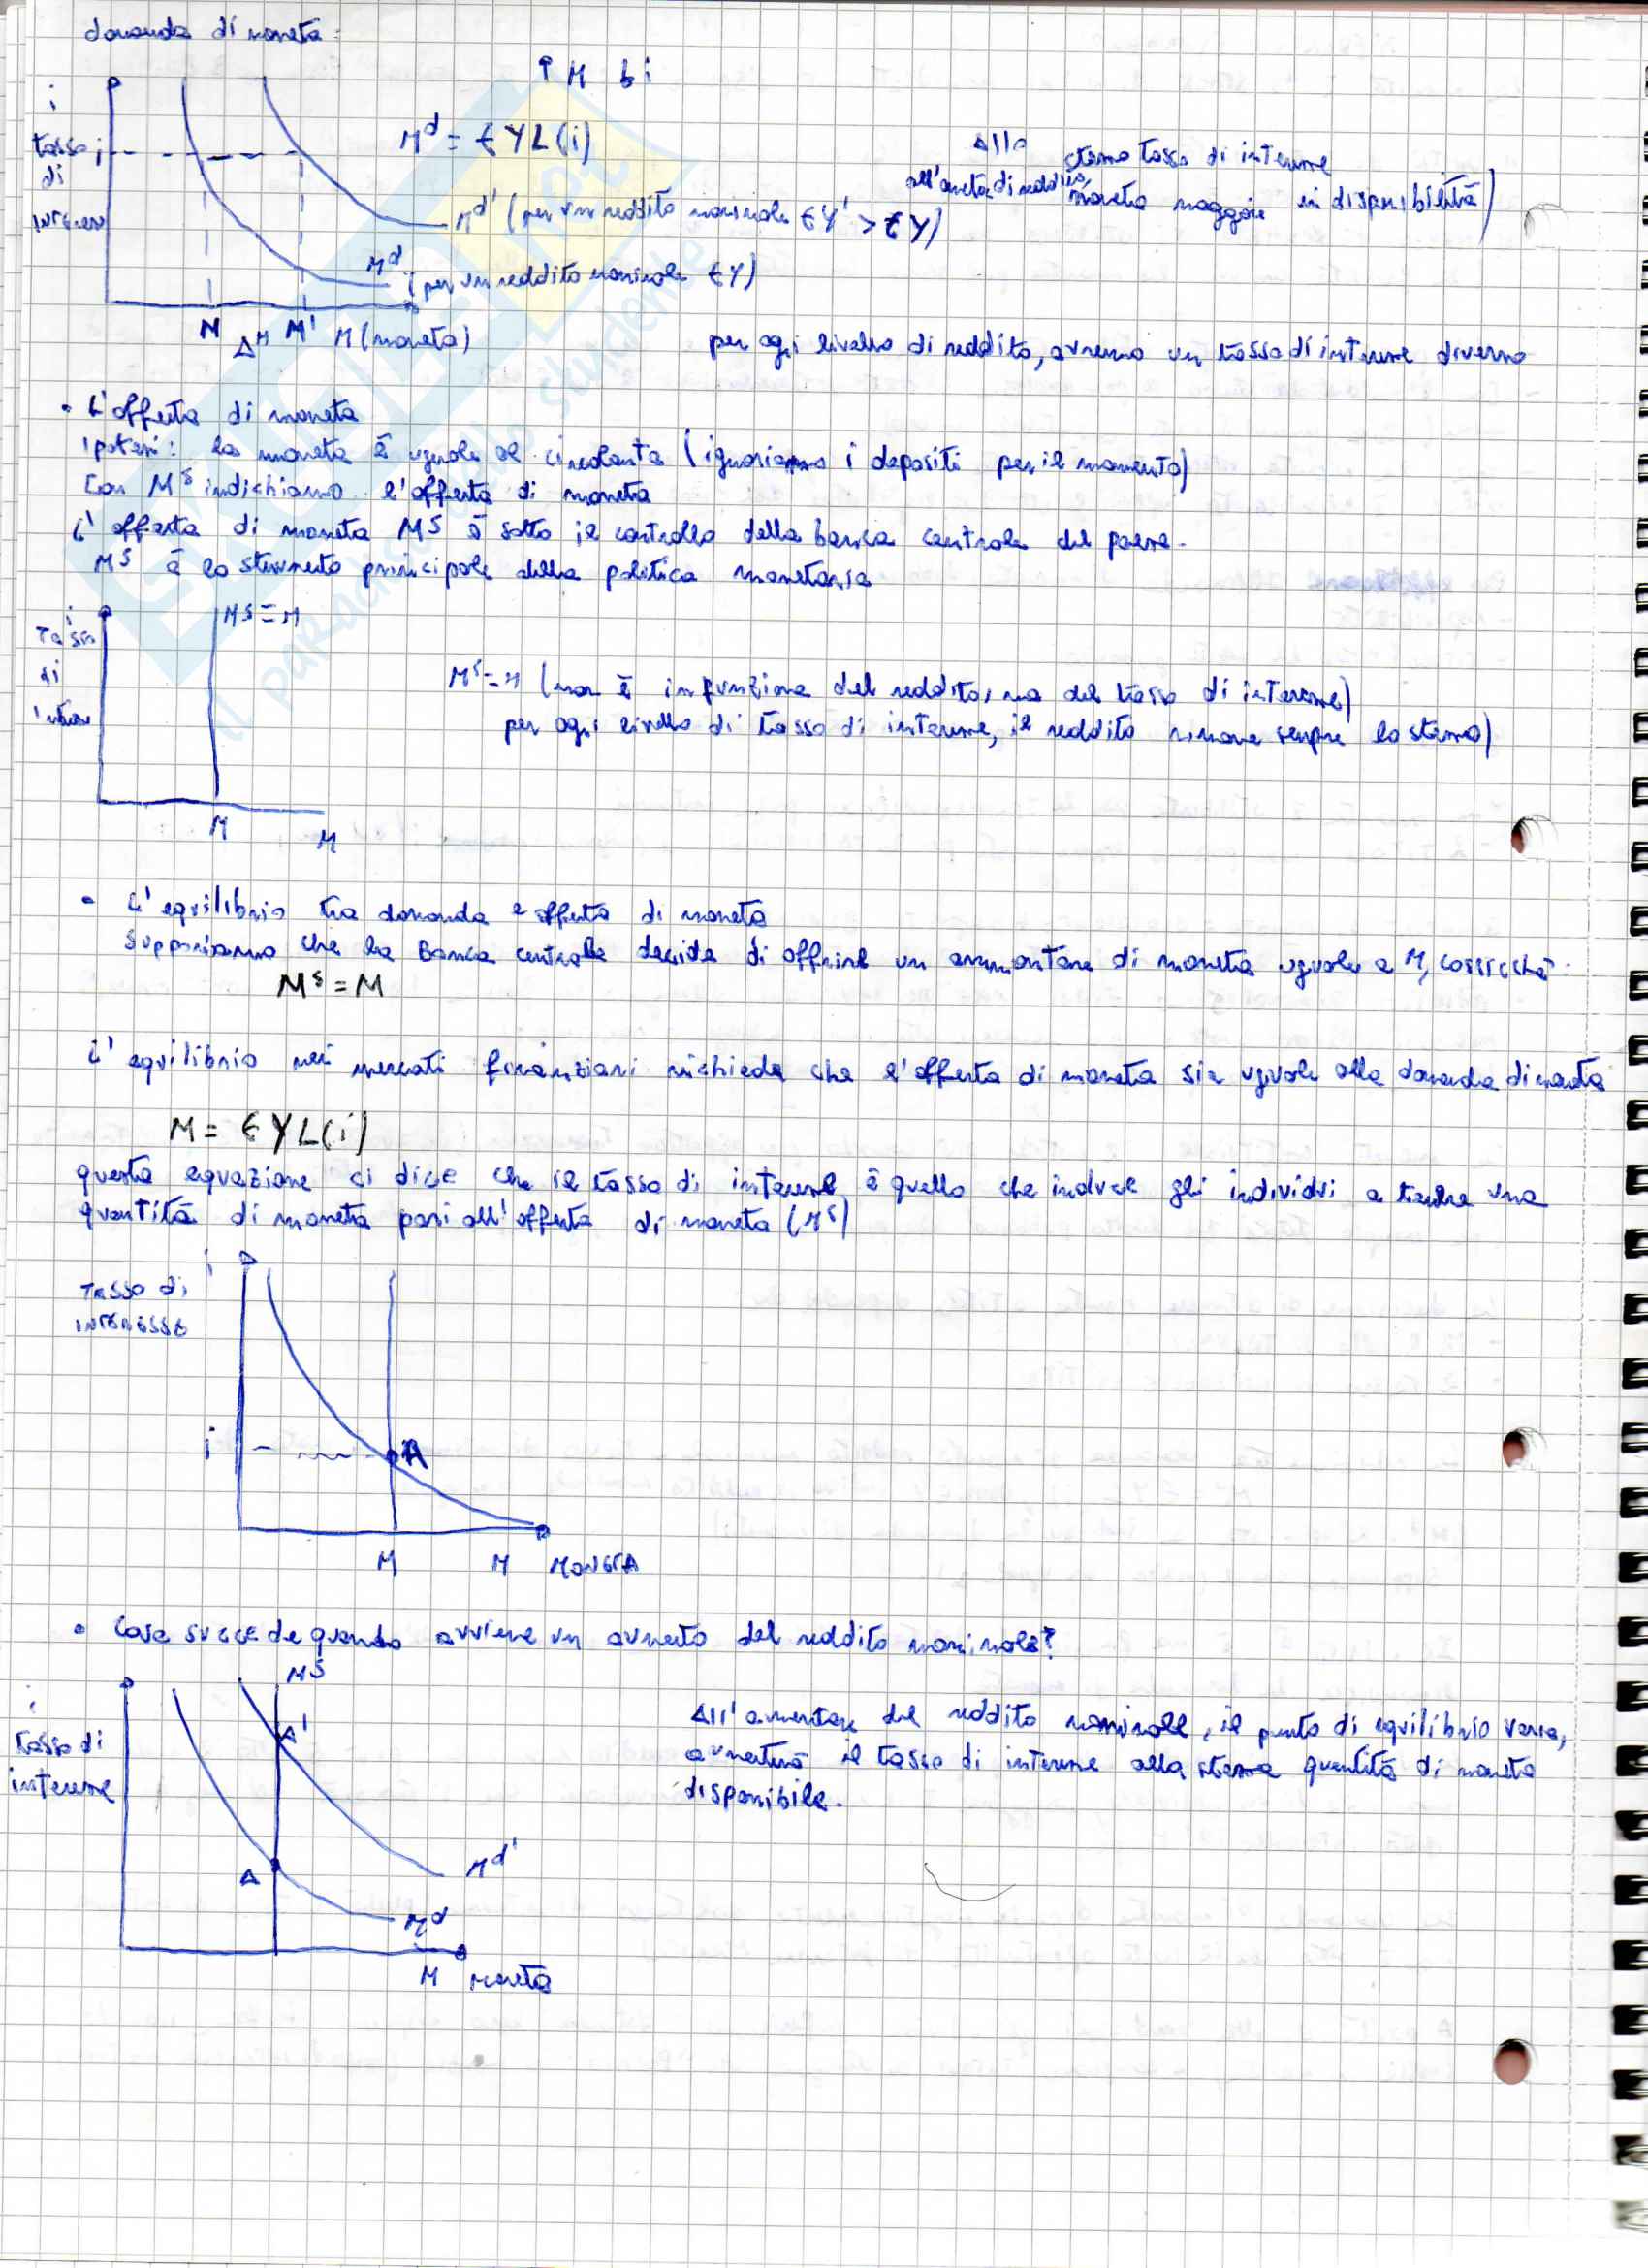 domanda di moneta:
↑ M ↓ i
i
tasso
di
interesse
i
M^d = €YL(i)
Allo stesso tasso di interesse
all'aumento di reddito, moneta maggiore in disponibilità)
M^d' (per un reddito nominale €Y' > €Y)
M^d (per un reddito nominale €Y)
M ΔM M' M (moneta)
per ogni livello di reddito, avremo un tasso di interesse diverso
• L'offerta di moneta
Ipotesi: la moneta è uguale al circolante (ignoriamo i depositi per il momento)
Con M^s indichiamo l'offerta di moneta
L'offerta di moneta M^s è sotto il controllo della banca centrale del paese.
M^s è lo strumento principale della politica monetaria
i
Tasso
di
interesse
M^s = M
M^s = M (non è in funzione del reddito, ma del tasso di interesse)
per ogni livello di tasso di interesse, il reddito rimane sempre lo stesso)
M
M
• L'equilibrio tra domanda e offerta di moneta
Supponiamo che la Banca centrale decida di offrire un ammontare di moneta uguale a M, cosicché
M^s = M
L'equilibrio nei mercati finanziari richiede che l'offerta di moneta sia uguale alla domanda di moneta
M = €YL(i)
questa equazione ci dice che il tasso di interesse è quello che induce gli individui a tenere una
quantità di moneta pari all'offerta di moneta (M^s)
i
TASSO di
INTERESSE
i
A
M M MONETA
• Cosa succede quando avviene un aumento del reddito nominale?
M^s
i
tasso di
interesse
A'
All'aumentare del reddito nominale, il punto di equilibrio varia,
aumenterà il tasso di interesse alla stessa quantità di moneta
disponibile.
A
M^d'
M^d
M moneta
il paradiso dello studente